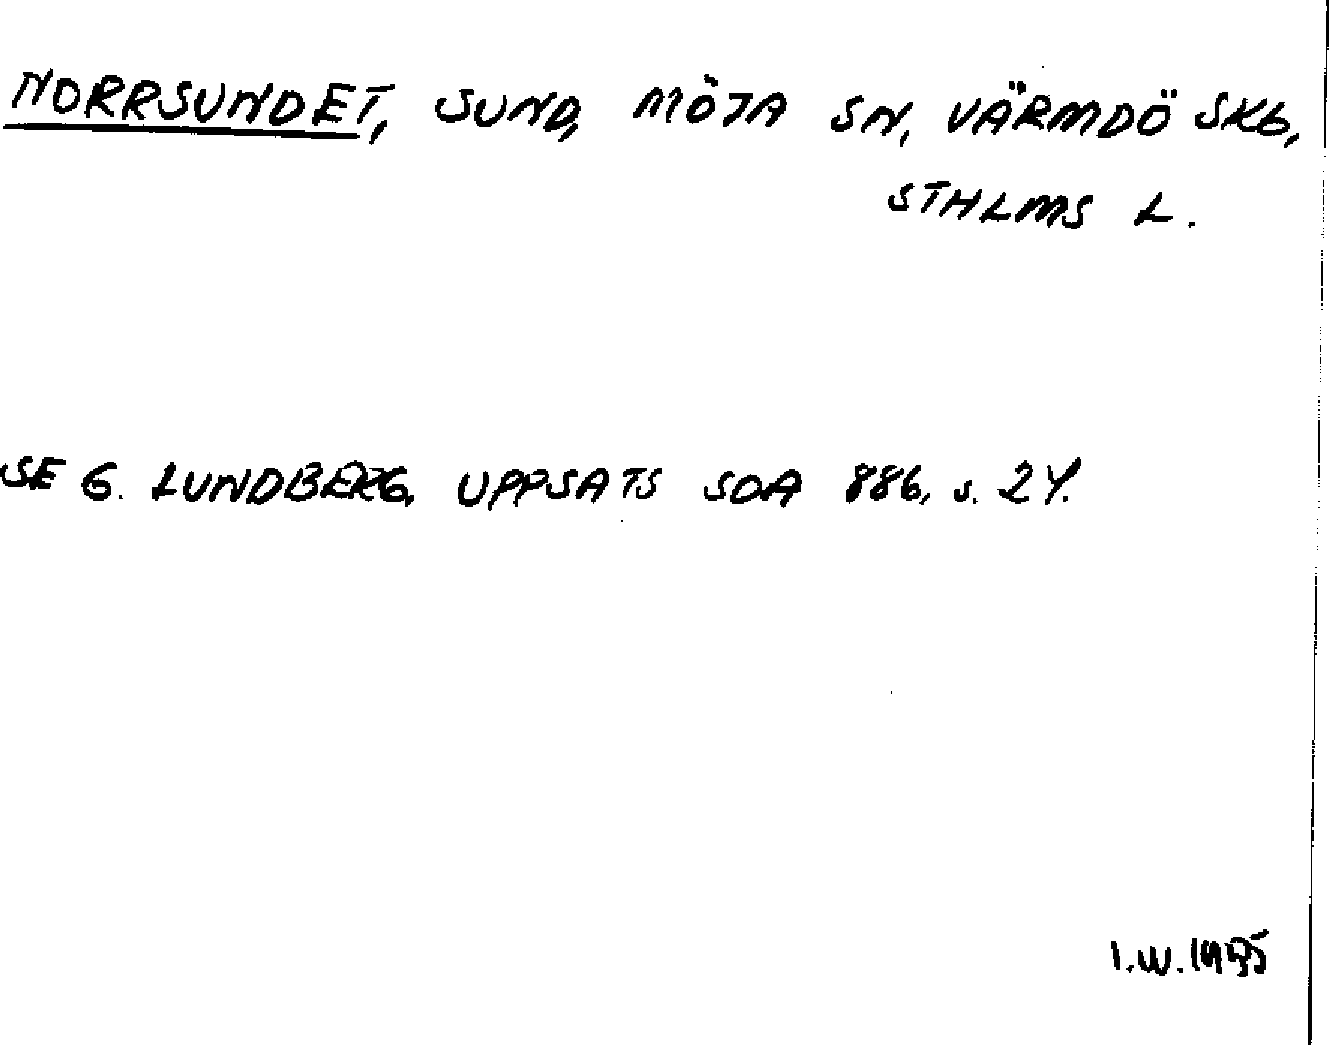 NORRSUNDET, SUND, MÖJA SN, VÄRMDÖ SKG,
STHLMS L.
SE G. LUNDBERG, UPPSATS SOA 886, s. 24.
I.W.